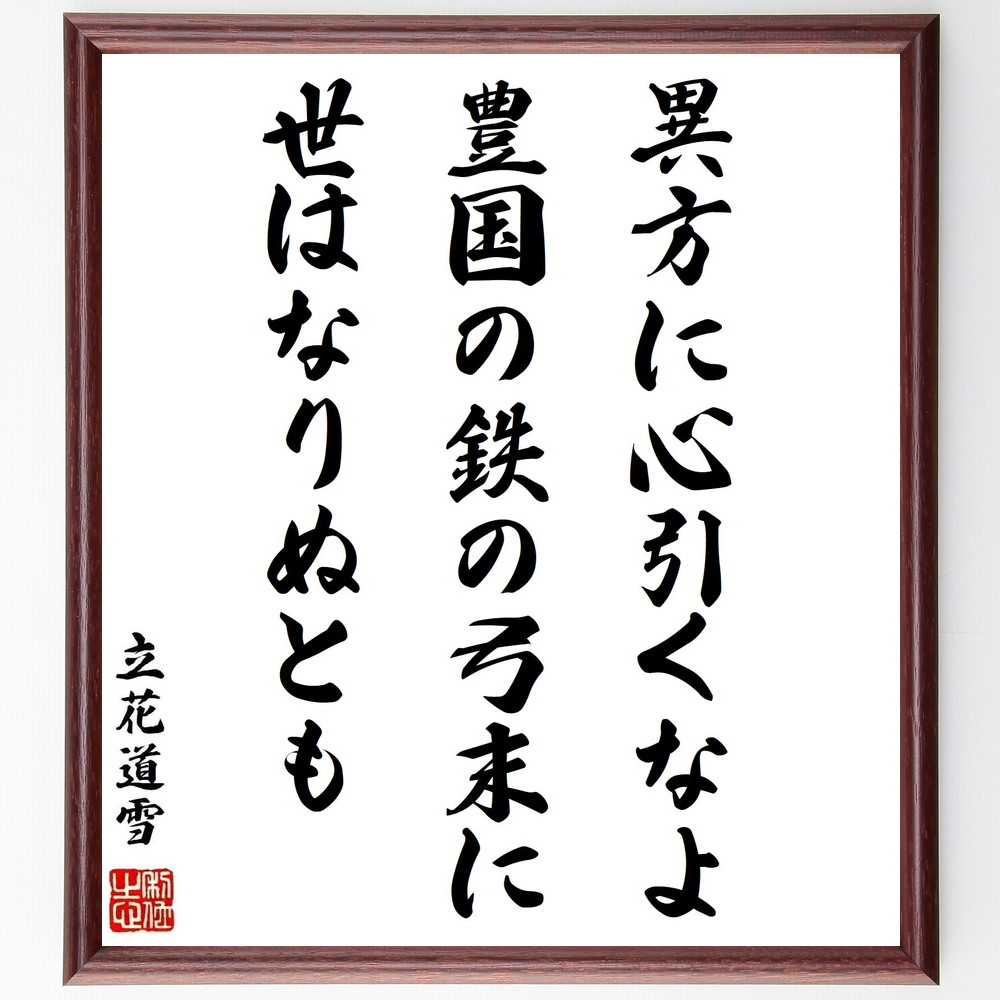 異方に心引くなよ
豊国の鉄の弓末に
世はなりぬとも
立花道雪